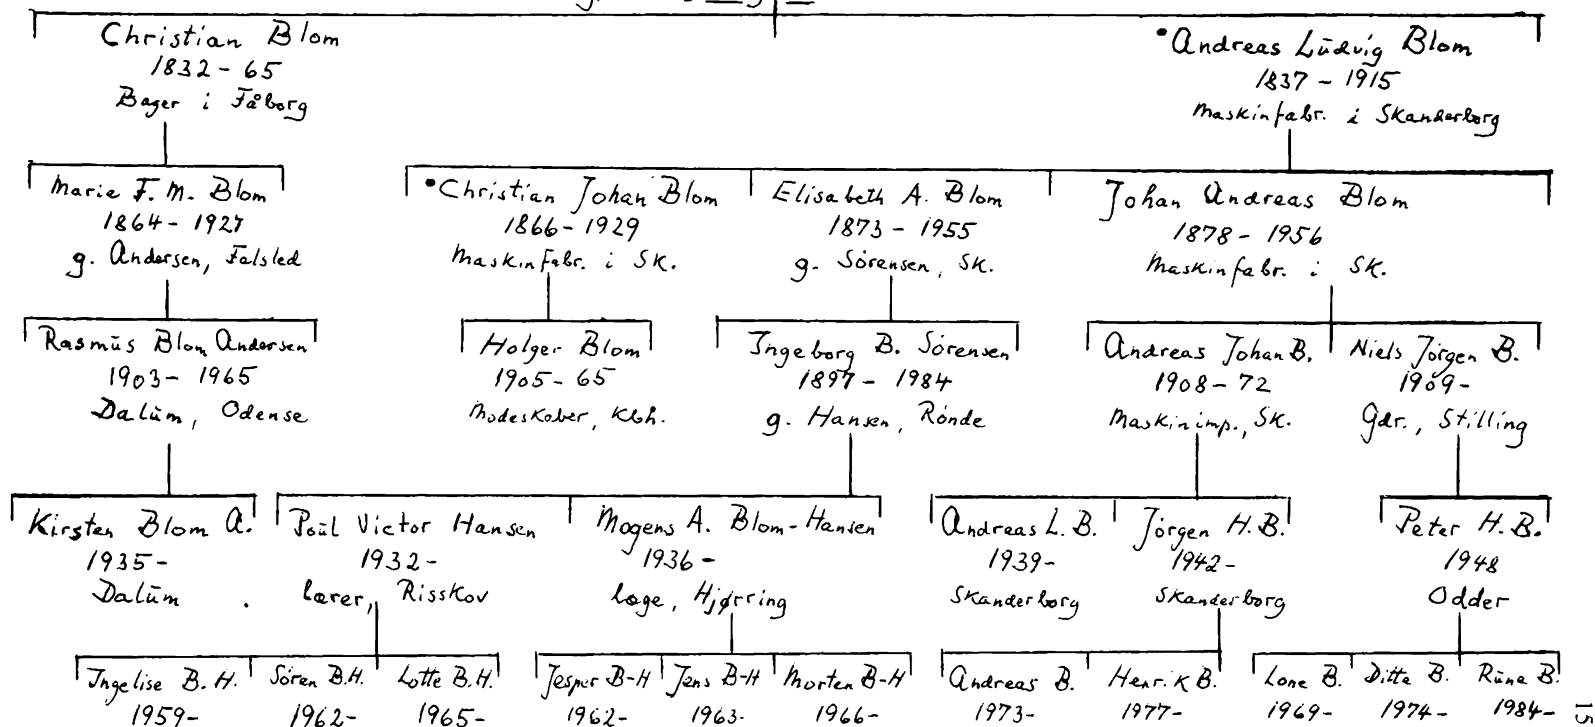 Christian Blom
1832 - 65
Bager i Fåborg
•Andreas Lūdvig Blom
1837 - 1915
Maskinfabr. i Skanderborg
Marie F. M. Blom
1864 - 1927
g. Andersen, Falsled
•Christian Johan Blom
1866 - 1929
Maskinfabr. i SK.
Elisabeth A. Blom
1873 - 1955
g. Sörensen, SK.
Johan Andreas Blom
1878 - 1956
Maskinfabr. i SK.
Rasmūs Blom Andersen
1903 - 1965
Dalūm, Odense
Holger Blom
1905 - 65
Modeskaber, Kbh.
Ingeborg B. Sörensen
1897 - 1984
g. Hansen, Rönde
Andreas Johan B.
1908 - 72
Maskinimp., SK.
Niels Jörgen B.
1909 -
Gdr., Stilling
Kirsten Blom A.
1935 -
Dalūm
Poūl Victor Hansen
1932 -
lærer, Risskov
Mogens A. Blom-Hansen
1936 -
læge, Hjørring
Andreas L. B.
1939 -
Skanderborg
Jörgen H. B.
1942 -
Skanderborg
Peter H. B.
1948
Odder
Ingelise B. H.
1959 -
Sören B.H.
1962 -
Lotte B.H.
1965 -
Jesper B-H
1962 -
Jens B-H
1963 -
Morten B-H
1966 -
Andreas B.
1973 -
Henrik B.
1977 -
Lone B.
1969 -
Ditte B.
1974 -
Rūne B.
1984 -
15